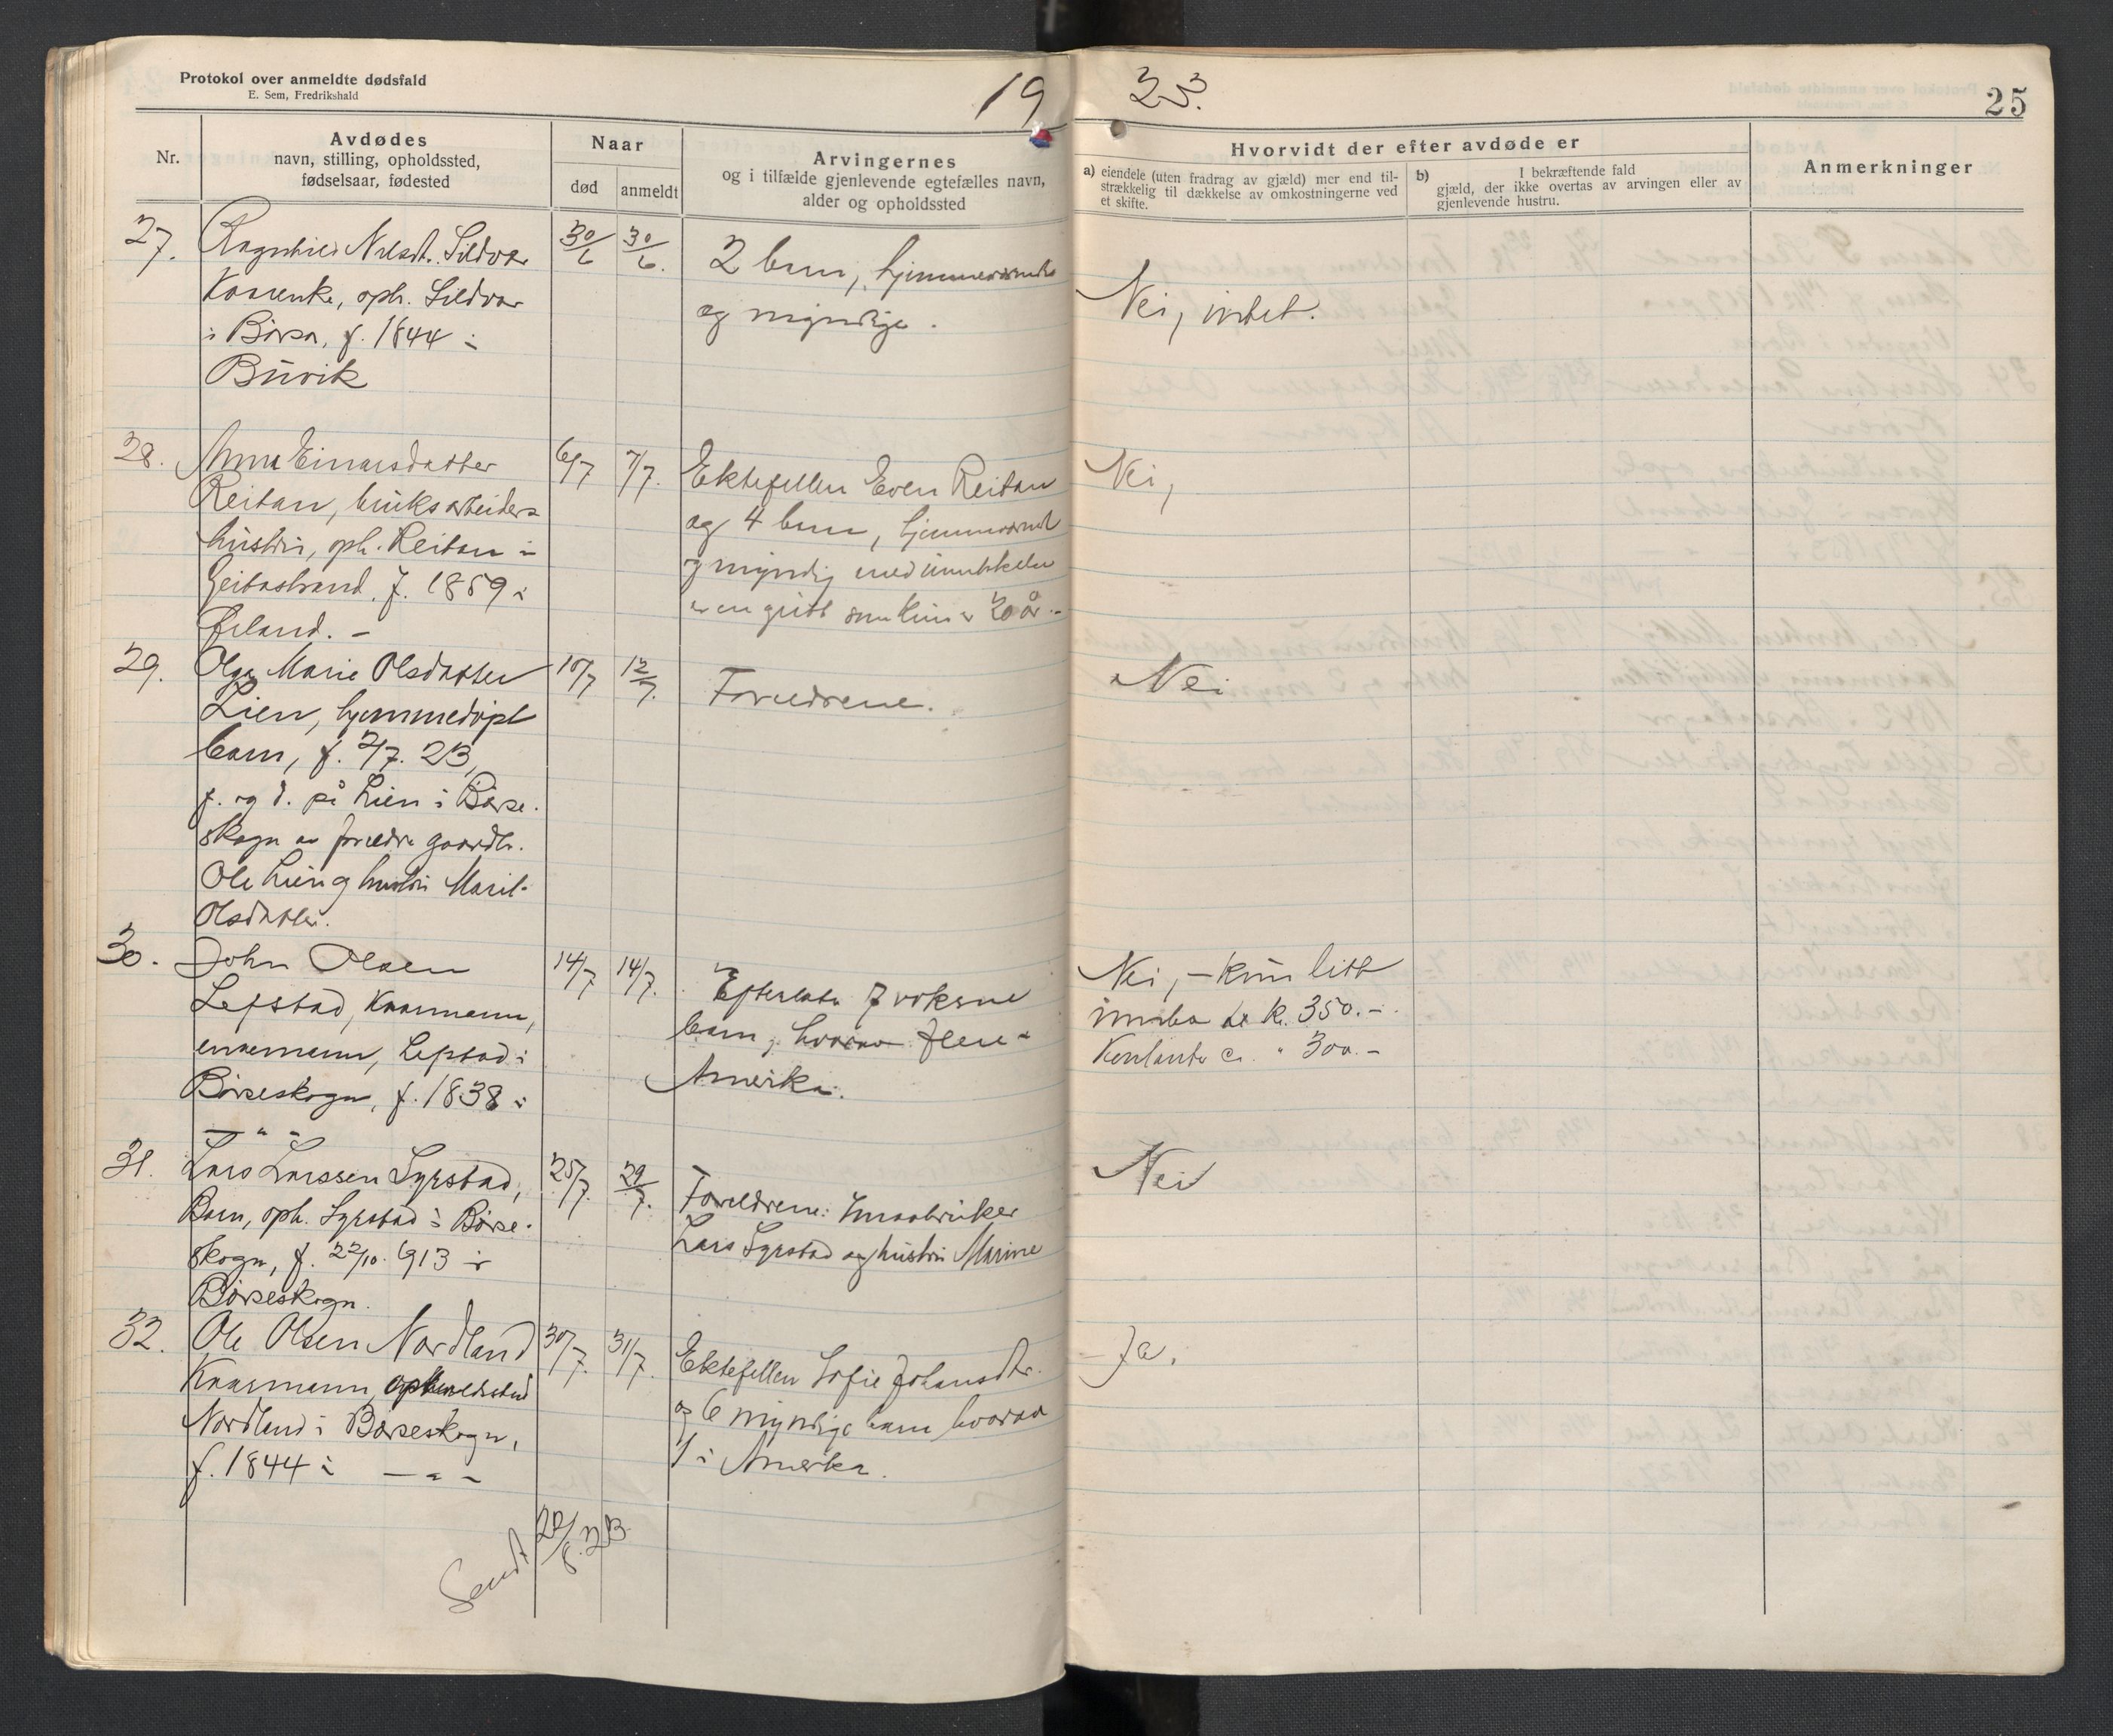 Protokol over anmeldte dødsfald
E. Sem, Fredrikshald
19 23.
25
Nr.
Avdødes
navn, stilling, opholdssted,
fødselsaar, fødested
Naar
død
anmeldt
Arvingernes
og i tilfælde gjenlevende egtefælles navn,
alder og opholdssted
Hvorvidt der efter avdøde er
a) eiendele (uten fradrag av gjæld) mer end til-
strækkelig til dækkelse av omkostningerne ved
et skifte.
b) I bekræftende fald
gjæld, der ikke overtas av arvingen eller av
gjenlevende hustru.
Anmerkninger
27. Ragnhild Nilsdt. Sildvær
Kaarenke, oph. Sildvær
i Börsa, f. 1844 i
Buvik
30/6 30/6.
2 barn, hjemmeværende
og myndige.
Nei, intet.
28. Anna Einarsdatter
Reitan, bruksarbeider-
hustru, oph. Reitan i
Geitastrand, f. 1859 i
Ørland. -
6/7 7/7.
Ektefellen Even Reitan
og 4 barn, hjemmeværende
og myndig med
en gutt som kun er 20 år.-
Nei,
29. Olga Marie Olsdatter
Lien, hjemmedöpt
barn, f. 2/7. 23,
f. og d. på Lien i Börse-
skogn av foreldre gaardbr.
Ole Lien og hustru Marit
Olsdatter.
10/7 12/7.
Foreldrene.
Nei
30. John Olsen
Lefstad, Kaarmann,
enkemann, Lefstad i
Börseskogn, f. 1838 i
— " –
14/7 14/7.
Efterlater 7 voksne
barn, hvorav flere i
Amerika.
Nei, – kun litt
innbo kr. 350.-
Kontanter ca. " 300.-
31. Lars Larssen Syrstad,
Barn, oph. Syrstad i Börse-
skogn, f. 22/10. 1913 i
Börseskogn.
25/7. 29/7.
Foreldrene: Smaabruker
Lars Syrstad og hustru Marine
Nei
32. Ole Olsen Nordland
Kaarmann, opholdssted
Nordland i Börseskogn,
f. 1844 i — " –
30/7. 31/7.
Ektefellen Sofie Johansdtr.
og 6 myndige barn hvorav
1 i Amerika.
Ja.
Sendt 20/8.23.